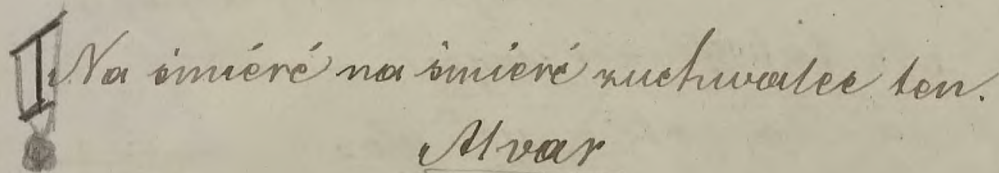 Na śmiérć na śmierć zuchwalec ten.
Alvar